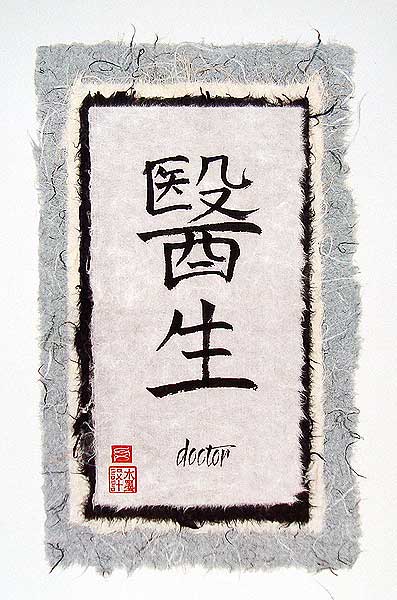 醫生
doctor
水墨設計